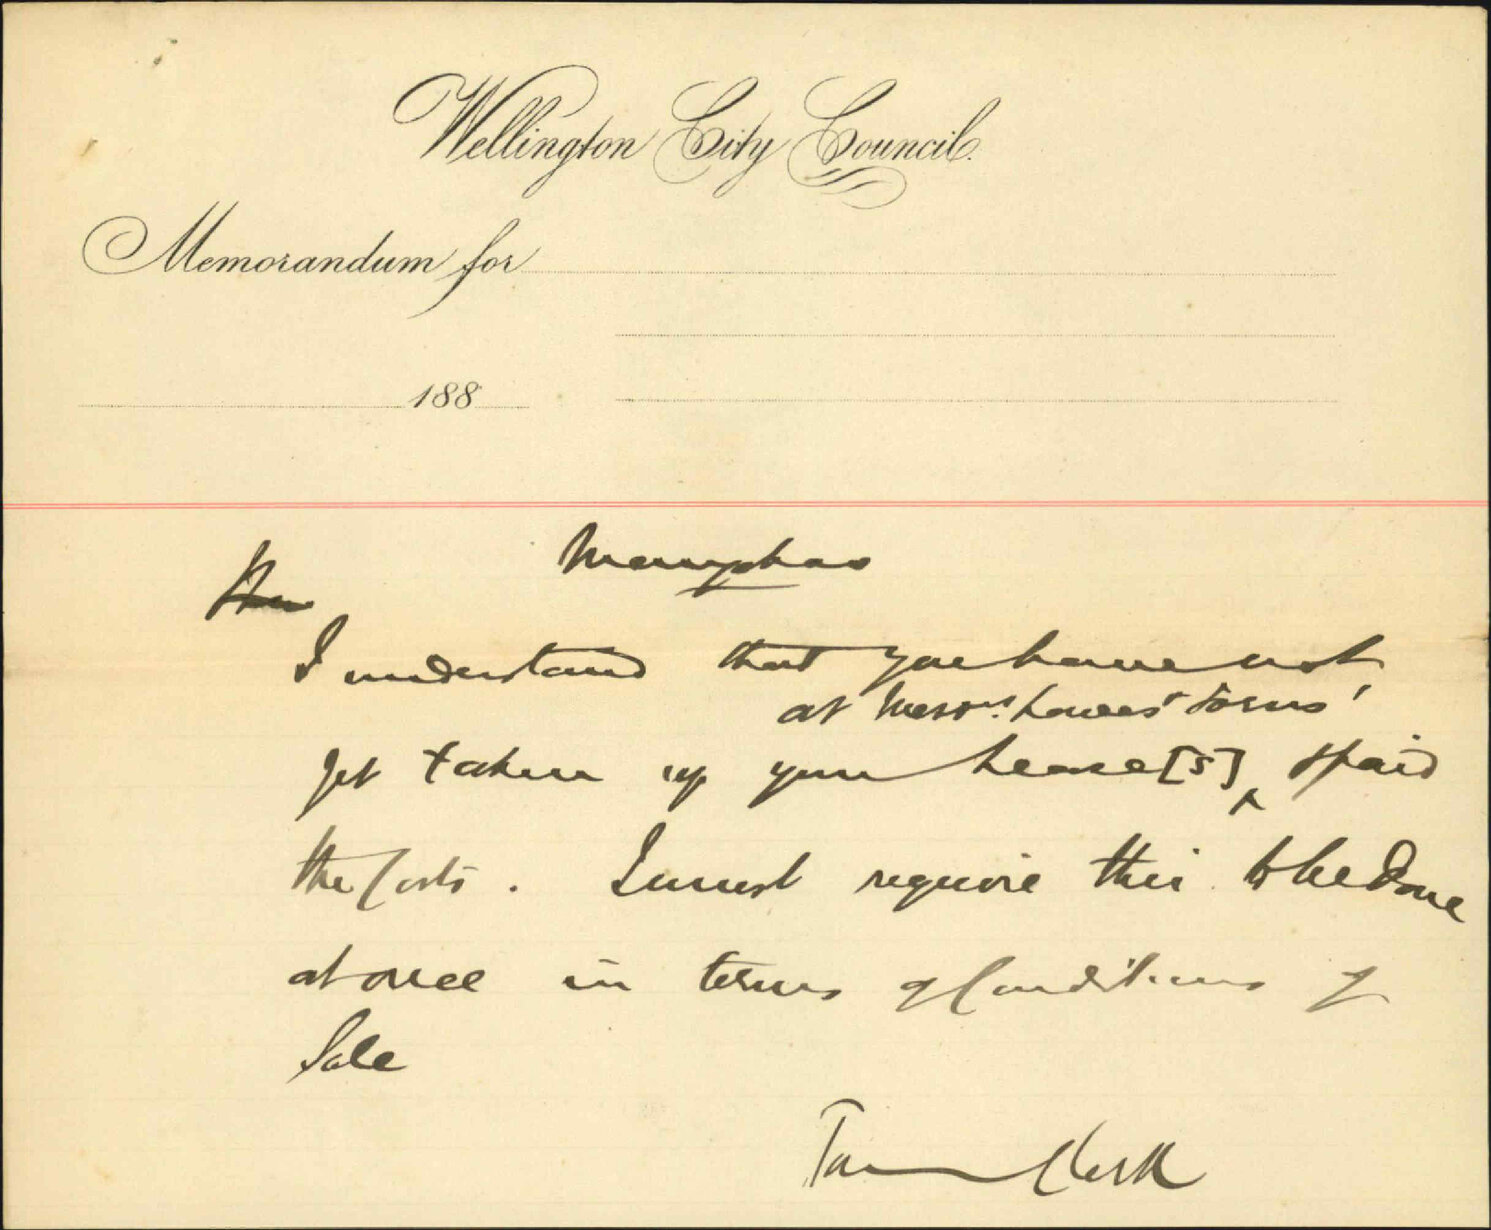 Wellington City Council.
Memorandum for
188
I understand that you have not
at Messrs.
yet taken up your Lease[s] & paid
the Costs. I must require this to be done
at once in terms of Conditions of
Sale
Town Clerk